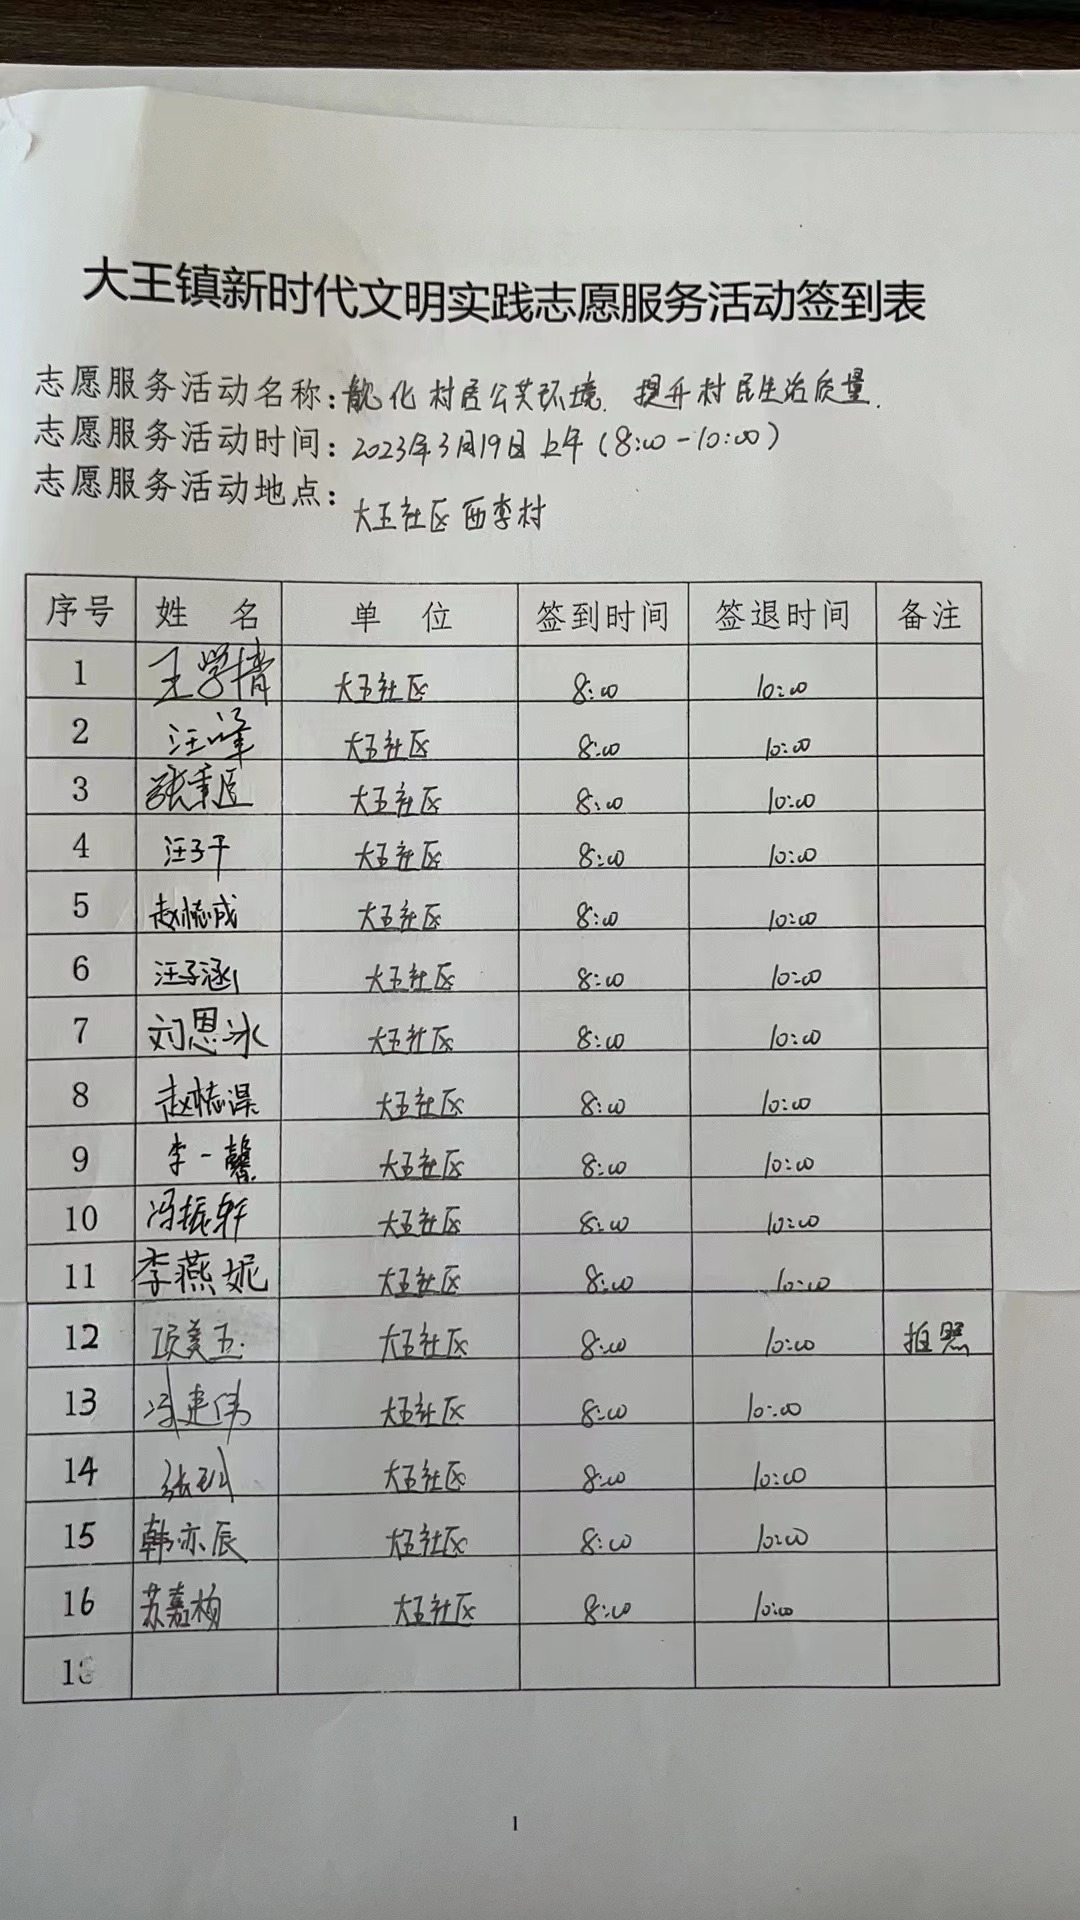 大王镇新时代文明实践志愿服务活动签到表
志愿服务活动名称: 化村居公共环境、提升村民生活质量.
志愿服务活动时间: 2023年3月19日上午(8:00-10:00)
志愿服务活动地点: 大王社区西李村
序号 姓 名 单 位 签到时间 签退时间 备注
1 王学 大王社区 8:00 10:00
2 汪泽 大王社区 8:00 10:00
3 张 大王社区 8:00 10:00
4 汪子干 大王社区 8:00 10:00
5 赵梽成 大王社区 8:00 10:00
6 汪子涵 大王社区 8:00 10:00
7 刘恩冰 大王社区 8:00 10:00
8 赵梽淏 大王社区 8:00 10:00
9 李一馨 大王社区 8:00 10:00
10 冯振轩 大王社区 8:00 10:00
11 李燕妮 大王社区 8:00 10:00
12 项美玉 大王社区 8:00 10:00 拍照
13 冯建伟 大王社区 8:00 10:00
14 张 大王社区 8:00 10:00
15 韩亦辰 大王社区 8:00 10:00
16 苏嘉 大王社区 8:00 10:00
1